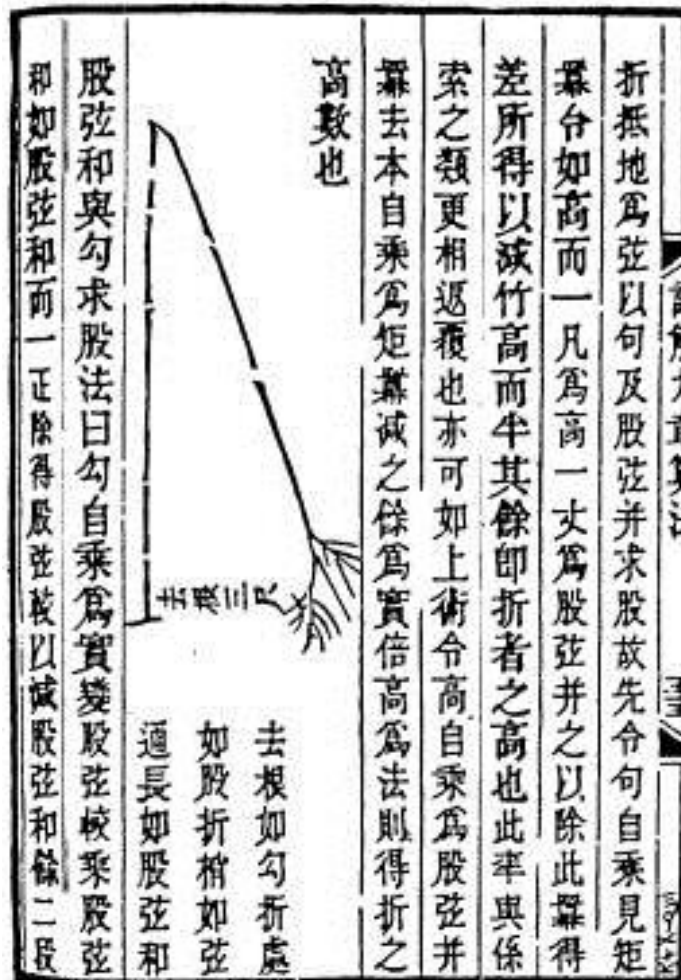 詳解九章算法
折抵地爲弦以句及股弦并求股故先令句自乘見矩
冪台如高而一凡爲高一丈爲股弦并之以除此冪得
差所得以減竹高而半其餘即折者之高也此率與係
索之類更相返覆也亦可如上術令高自乘爲股弦并
冪去本自乘爲矩冪減之餘爲實倍高爲法則得折之
高數也
去根三尺
去根如勾折處
如股折梢如弦
通長如股弦和
股弦和與勾求股法曰勾自乘爲實變股弦較乘股弦
和如股弦和而一正除得股弦較以減股弦和餘二段